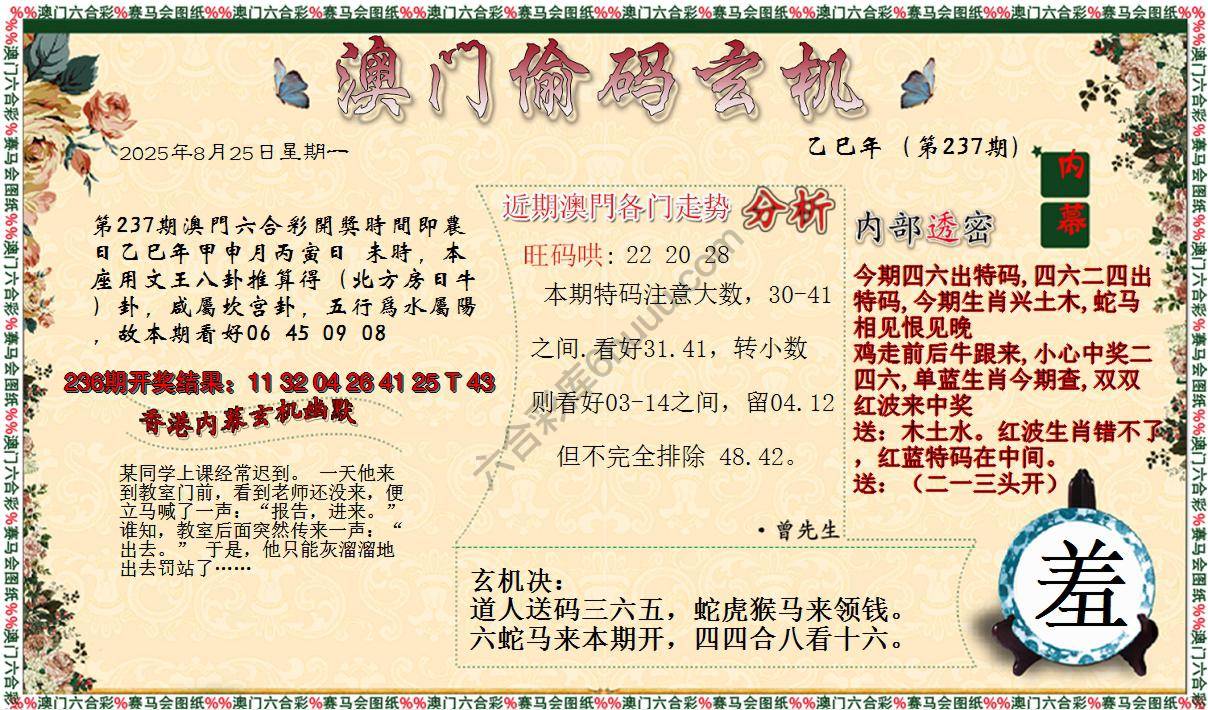 %%澳门六合彩%赛马会图纸%%澳门六合彩%赛马会图纸%%澳门六合彩%赛马会图纸%%澳门六合彩%赛马会图纸%%澳门六合彩%赛马会图纸%%澳门六合彩%赛马会图纸%%澳门六合彩%赛马会图纸
澳门偷码玄机
2025年8月25日星期一
乙巳年（第237期）
内
幕
第237期澳門六合彩開獎時間即農
日乙巳年甲申月丙寅日 未時，本
座用文王八卦推算得（北方房日牛
）卦，咸屬坎宫卦，五行爲水屬陽
，故本期看好06 45 09 08
236期开奖结果：11 32 04 26 41 25 T 43
香港内幕玄机幽默
某同学上课经常迟到。 一天他来
到教室门前，看到老师还没来，便
立马喊了一声：“报告，进来。”
谁知，教室后面突然传来一声：“
出去。” 于是，他只能灰溜溜地
出去罚站了……
近期澳門各门走势 分析
旺码哄: 22 20 28
本期特码注意大数，30-41
之间.看好31.41，转小数
则看好03-14之间，留04.12
但不完全排除 48.42。
·曾先生
内部透密
今期四六出特码,四六二四出
特码,今期生肖兴土木,蛇马
相见恨见晚
鸡走前后牛跟来,小心中奖二
四六,单蓝生肖今期查,双双
红波来中奖
送：木土水。红波生肖错不了
，红蓝特码在中间。
送：（二一三头开）
玄机决：
道人送码三六五，蛇虎猴马来领钱。
六蛇马来本期开，四四合八看十六。
羞